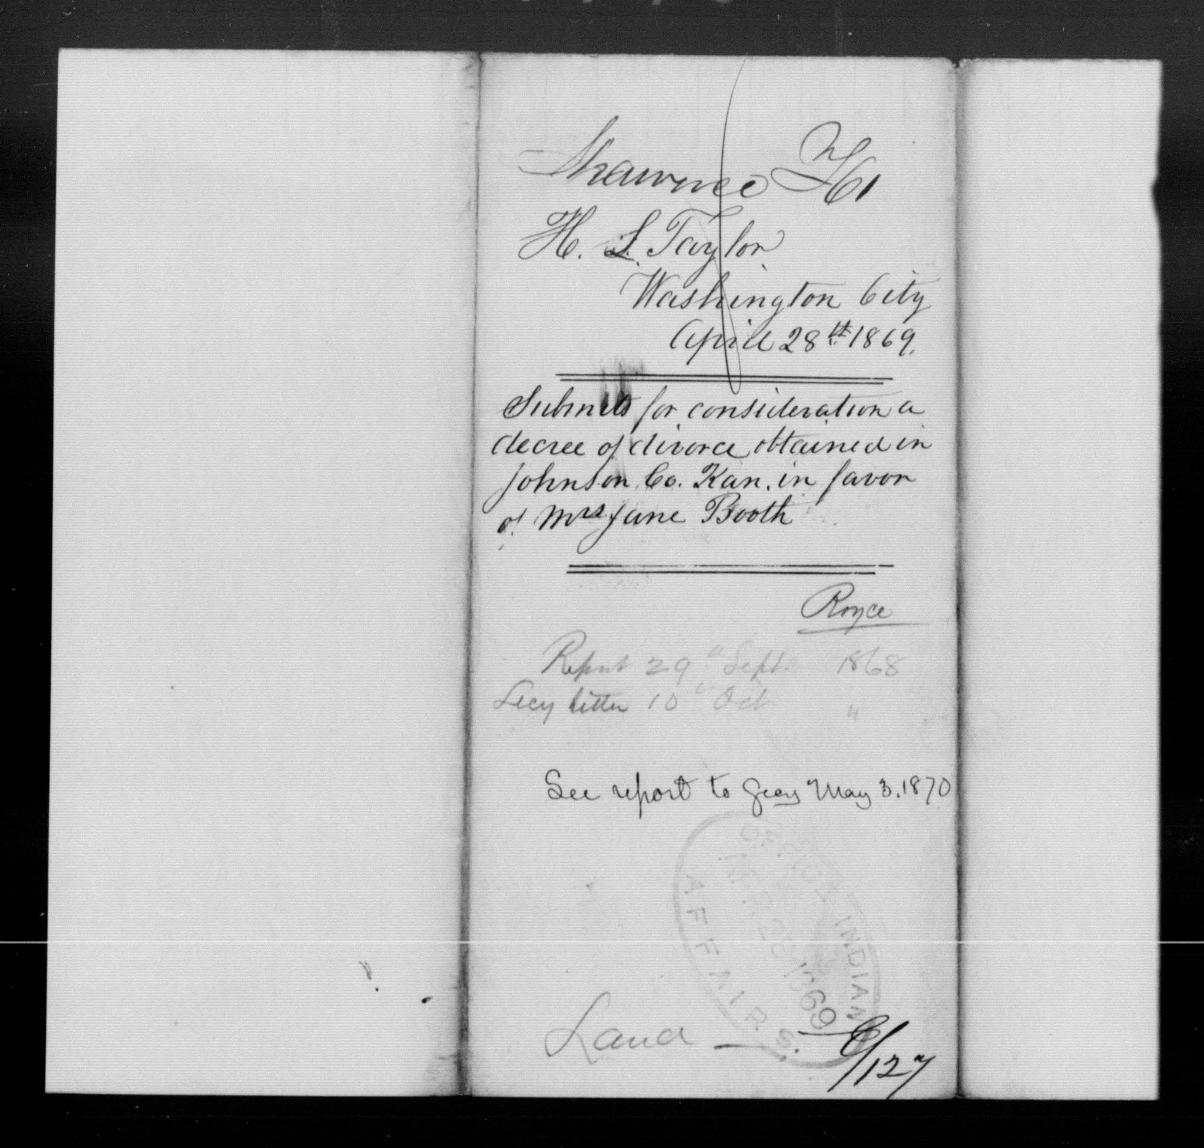 Shawnee T/61
H. L. Taylor
Washington City
April 28th 1869.
Submits for consideration a
decree of divorce obtained in
Johnson Co. Kan. in favor
of Mrs Jane Booth
Royce
Report 29" Sept. 1868
Secy letter 10" Oct "
See report to Secy May 3. 1870
OFFICE INDIAN AFFAIRS.
APR 28 1869
Land
/127